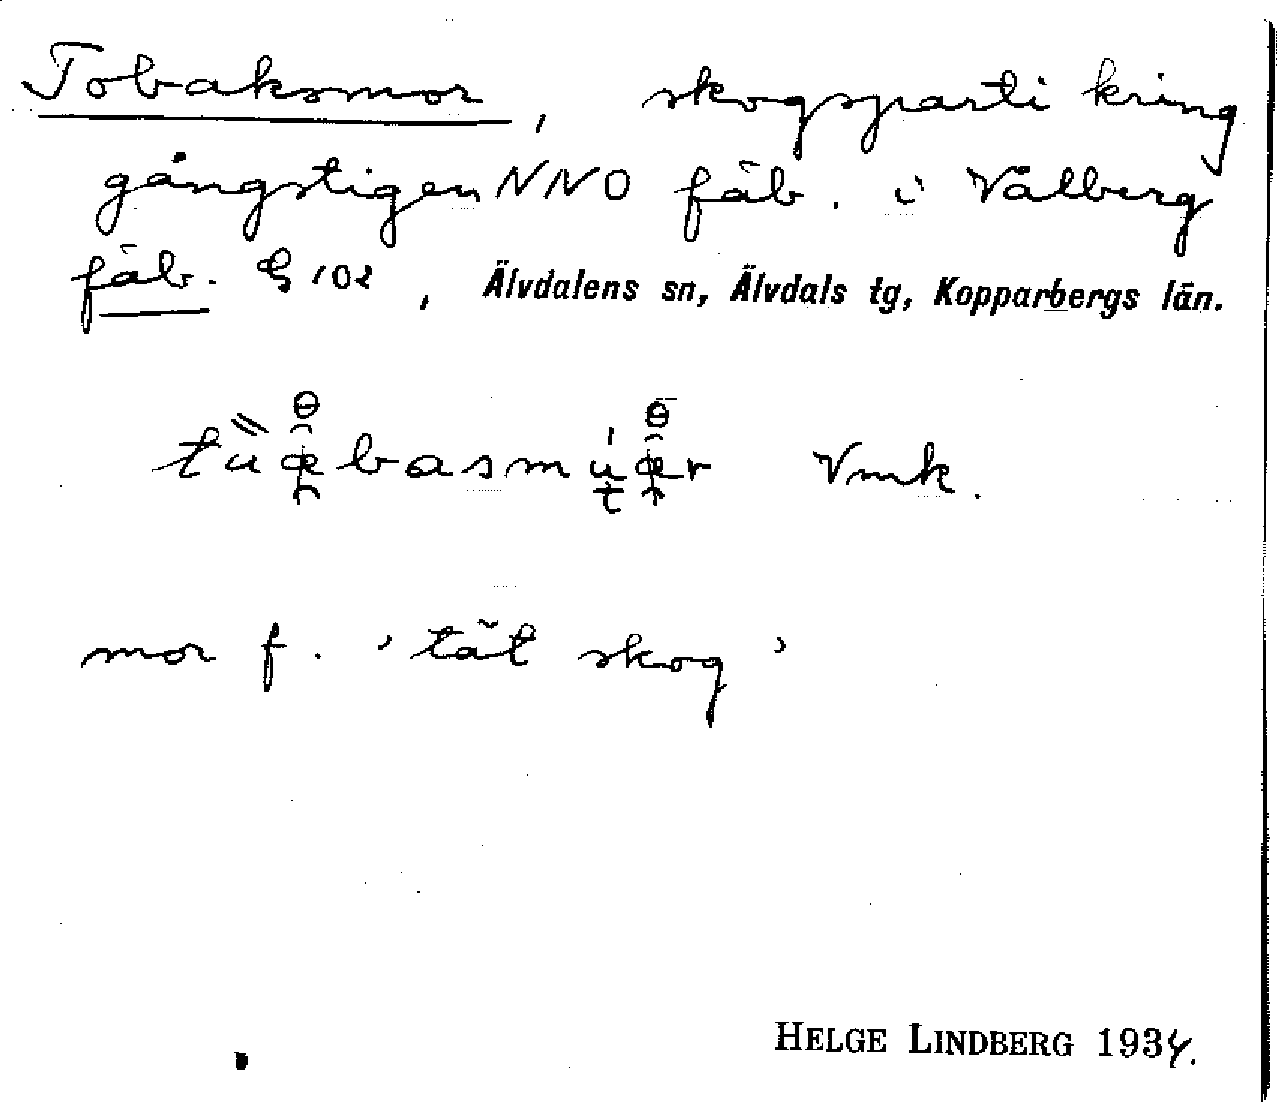 Tobaksmor, skogsparti kring
gångstigen NNO fäb. i Våsberg
fäb. G 102, Älvdalens sn, Älvdals tg, Kopparbergs län.
Vmk.
mor f. 'tät skog'
HELGE LINDBERG 1934.